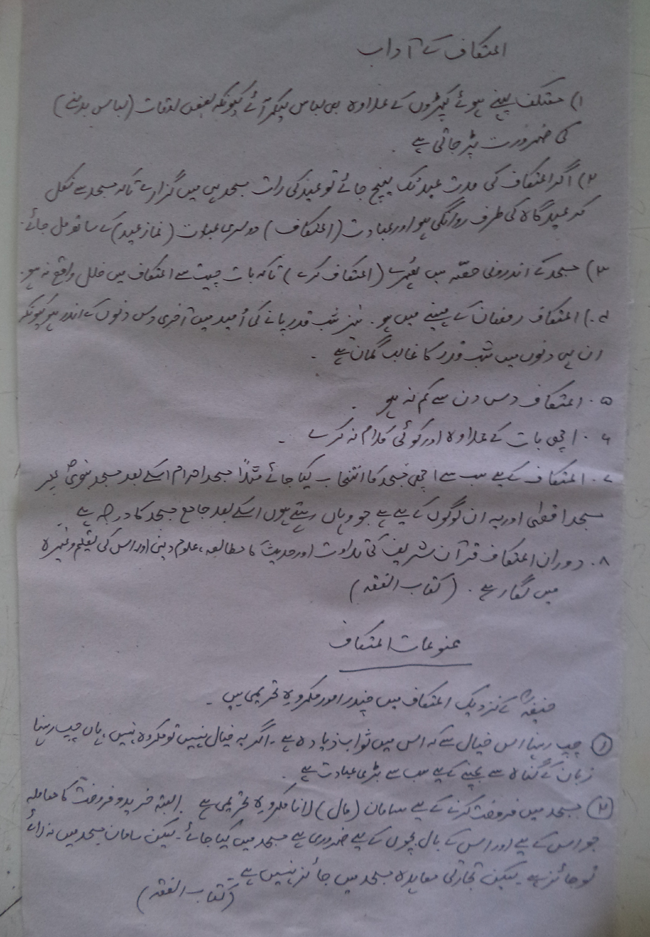 اعتکاف کے آداب
۱) معتکف پہنے ہوئے کپڑوں کے علاوہ بھی لباس لیکر آئے کیونکہ بعض اوقات (لباس بدلنے)
کی ضرورت پڑ جاتی ہے۔
۲) اگر اعتکاف کی مدت عید تک پہنچ جائے تو عید کی رات مسجد ہی میں گزارے تاکہ مسجد سے نکل
کر عید گاہ کی طرف روانگی ہو اور عبادت (اعتکاف) دوسری عبادت (نماز عید) کے ساتھ مل جائے۔
۳) مسجد کے اندرونی حصّہ میں ٹھہرے (اعتکاف کرے) تاکہ بات چیت سے اعتکاف میں خلل واقع نہ ہو۔
۴) اعتکاف رمضان کے مہینے میں ہو۔ نیز شب قدر پانے کی اُمید میں آخری دس دنوں کے اندر ہو کیونکہ
ان ہی دنوں میں شب قدر کا غالب گمان ہے۔
۵۔ اعتکاف دس دن سے کم نہ ہو۔
۶۔ اچھی بات کے علاوہ اور کوئی کلام نہ کرے۔
۷۔ اعتکاف کے لیے سب سے اچھی مسجد کا انتخاب کیا جائے مثلاً مسجد الحرام اسکے بعد مسجد نبویؐ پھر
مسجد اقصیٰ اور یہ ان لوگوں کے لیے ہے جو وہاں رہتے ہوں اسکے بعد جامع مسجد کا درجہ ہے
۸۔ دوران اعتکاف قرآن شریف کی تلاوت اور حدیث کا مطالعہ، علوم دینی اور اس کی تعلیم وغیرہ
میں لگا رہے۔ (کتاب الفقہ)
ممنوعات اعتکاف
حنیفہؒ کے نزدیک اعتکاف میں چند امور مکروہ تحریمی ہیں۔
① چپ رہنا اس خیال سے کہ اس میں ثواب زیادہ ہے۔ اگر یہ خیال نہیں تو مکروہ نہیں ہاں چپ رہنا
زبان کے گناہ سے بچنے کے لیے سب سے بڑی عبادت ہے
② مسجد میں فروخت کرنے کے لیے سامان (مال) لانا مکروہ تحریمی ہے۔ البتہ خرید و فروخت کا معاملہ
جو اس کے لیے اور اس کے بال بچوں کے لیے ضروری ہے مسجد میں کیا جائے۔ لیکن سامان مسجد میں نہ لائے
تو جائز ہے۔ لیکن تجارتی معاہدہ مسجد میں جائز نہیں ہے۔
(کتاب الفقہ)